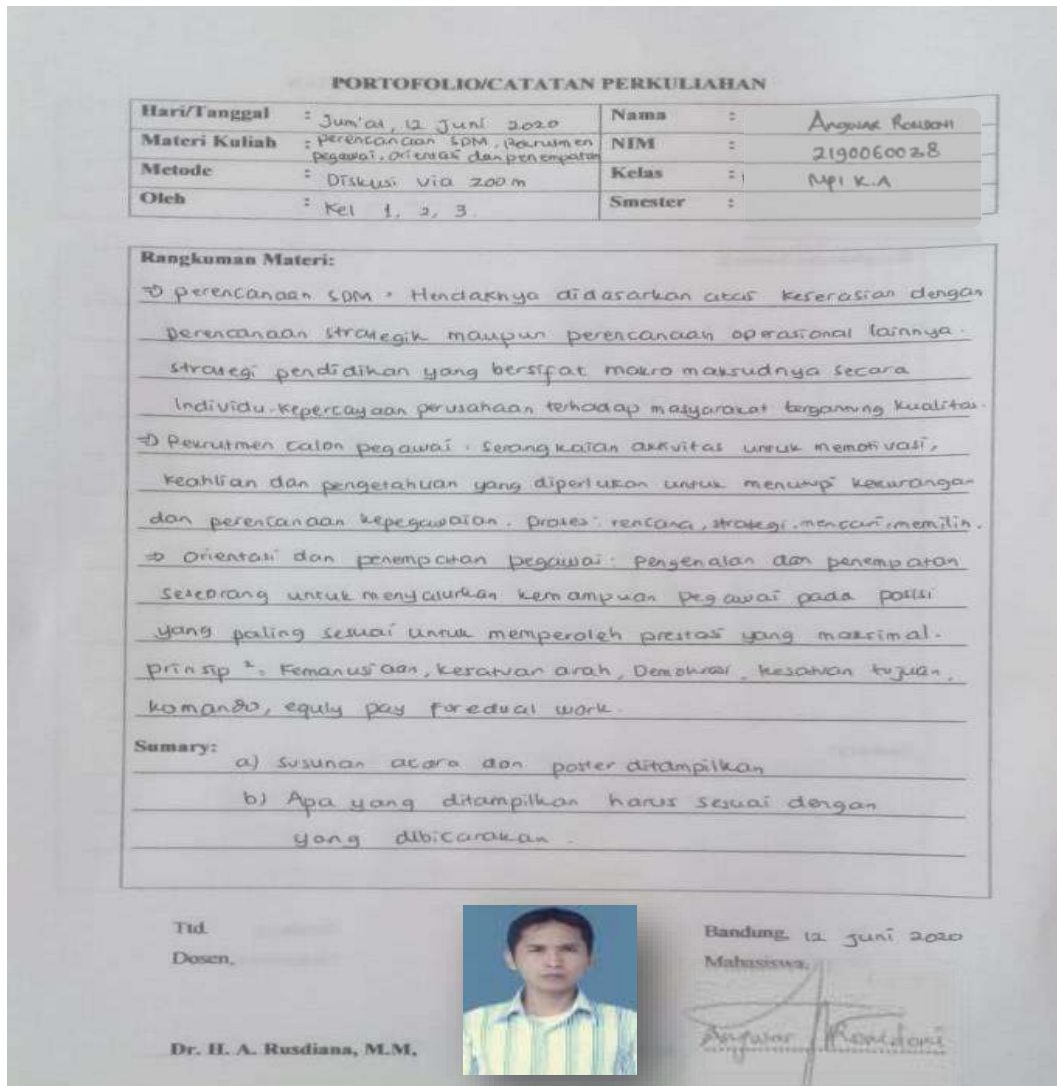 PORTOFOLIO/CATATAN PERKULIAHAN
Hari/Tanggal : Jum'at, 12 Juni 2020 Nama : Angwar Romdoni
Materi Kuliah : perencanaan SDM, Rekrutmen pegawai, orientasi dan penempatan NIM : 2190060028
Metode : Diskusi via zoom Kelas : MPI K.A
Oleh : Kel 1, 2, 3. Smester :
Rangkuman Materi:
⇒ perencanaan SDM : Hendaknya didasarkan atas keserasian dengan
perencanaan strategik maupun perencanaan operasional lainnya.
strategi pendidikan yang bersifat makro maksudnya secara
Individu. kepercayaan perusahaan terhadap masyarakat tergantung kualitas.
⇒ Rekrutmen calon pegawai : serangkaian aktivitas untuk memotivasi,
keahlian dan pengetahuan yang diperlukan untuk menutupi kekurangan
dan perencanaan kepegawaian. proses : rencana, strategi, mencari, memilih.
⇒ Orientasi dan penempatan pegawai : pengenalan dan penempatan
seseorang untuk menyalurkan kemampuan pegawai pada posisi
yang paling sesuai untuk memperoleh prestasi yang maksimal.
prinsip ² : Kemanusiaan, kesatuan arah, Demokrasi, kesatuan tujuan,
komando, equly pay foredual work.
Sumary:
a) susunan acara dan poster ditampilkan
b) Apa yang ditampilkan harus sesuai dengan
yang dibicarakan.
Ttd. Bandung, 12 Juni 2020
Dosen, Mahasiswa,
Dr. H. A. Rusdiana, M.M, Angwar Romdoni